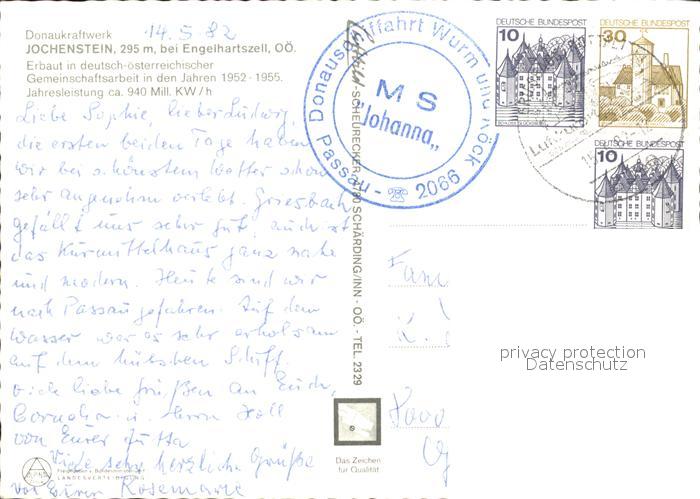 Donaukraftwerk
14.5.82
JOCHENSTEIN, 295 m, bei Engelhartszell, OÖ.
Erbaut in deutsch-österreichischer
Gemeinschaftsarbeit in den Jahren 1952-1955.
Jahresleistung ca. 940 Mill. KW/h
Liebe Sophie, lieber Ludwig,
die ersten beiden Tage haben
wir bei schönstem Wetter schon
sehr angenehm verlebt. Griesbach
gefällt uns sehr gut, auch ist
das Kurmittelhaus ganz nahe
und modern. Heute sind wir
nach Passau gefahren. Auf dem
Wasser war es sehr erholsam
auf dem hübschen Schiff.
Viele liebe Grüße an Euch,
Cornelia u. Herrn Holl
von Eurer Jutta
Viele sehr herzliche Grüße
von Eurer Rosemarie
Freigegeben v. Bundesministerium f.
LANDESVERTEIDIGUNG
SCHEURECKER, 4780 SCHÄRDING/INN - OÖ. - TEL. 2329
Donauschiffahrt Wurm und Köck
MS
"Johanna"
Passau - 2066
DEUTSCHE BUNDESPOST
10
DEUTSCHE BUNDESPOST
30
DEUTSCHE BUNDESPOST
10
Fam
8000
privacy protection
Datenschutz
Das Zeichen
für Qualität